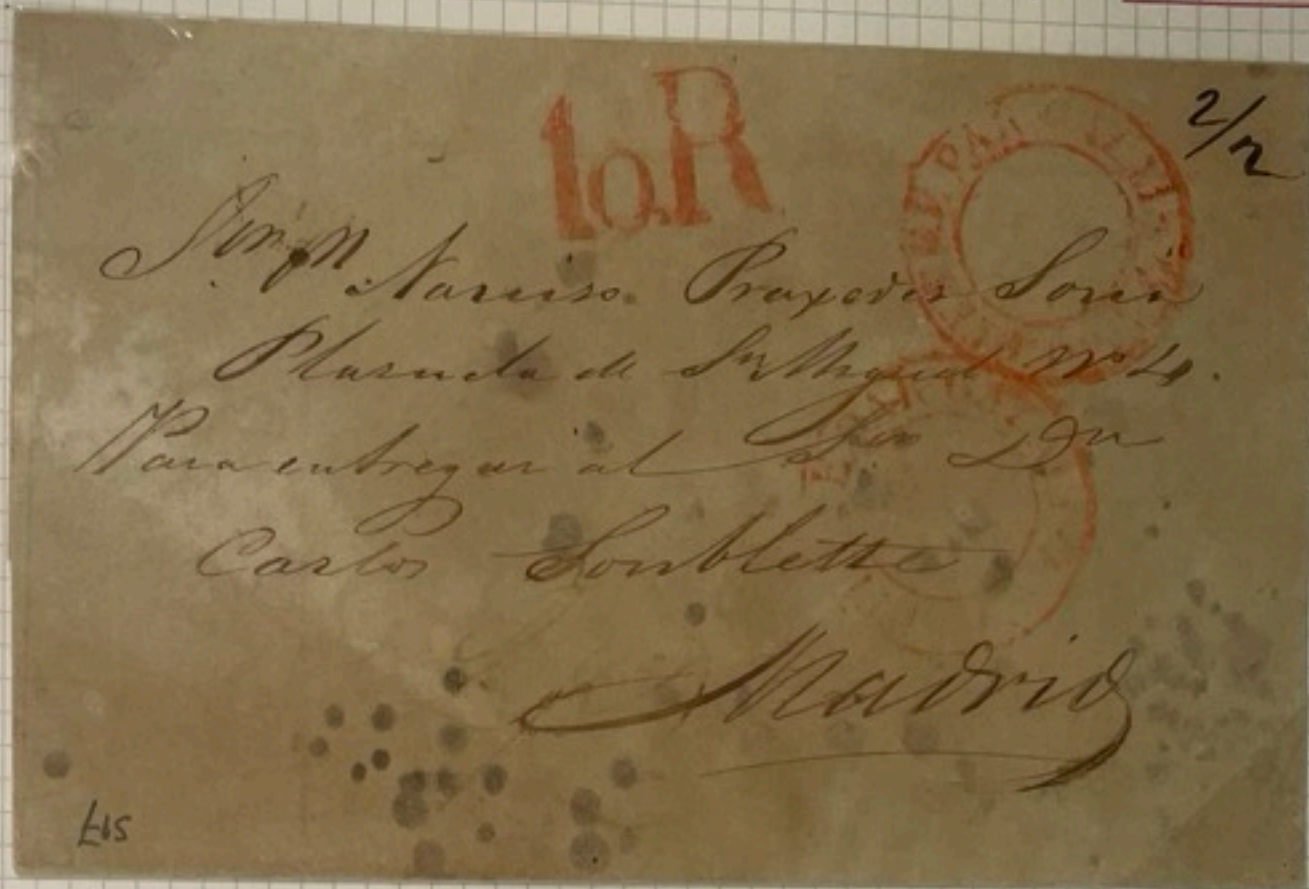 10.R
2/n
Sor. Dn Narciso Praxedes Soria
Plazuela de Sn Miguel No 4.
Para entregar al Sor Dn
Carlos Soublette
Madrid
£15